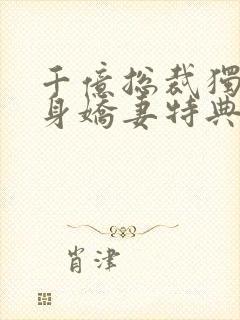 千億總裁獨
身嬌妻特典
肖津